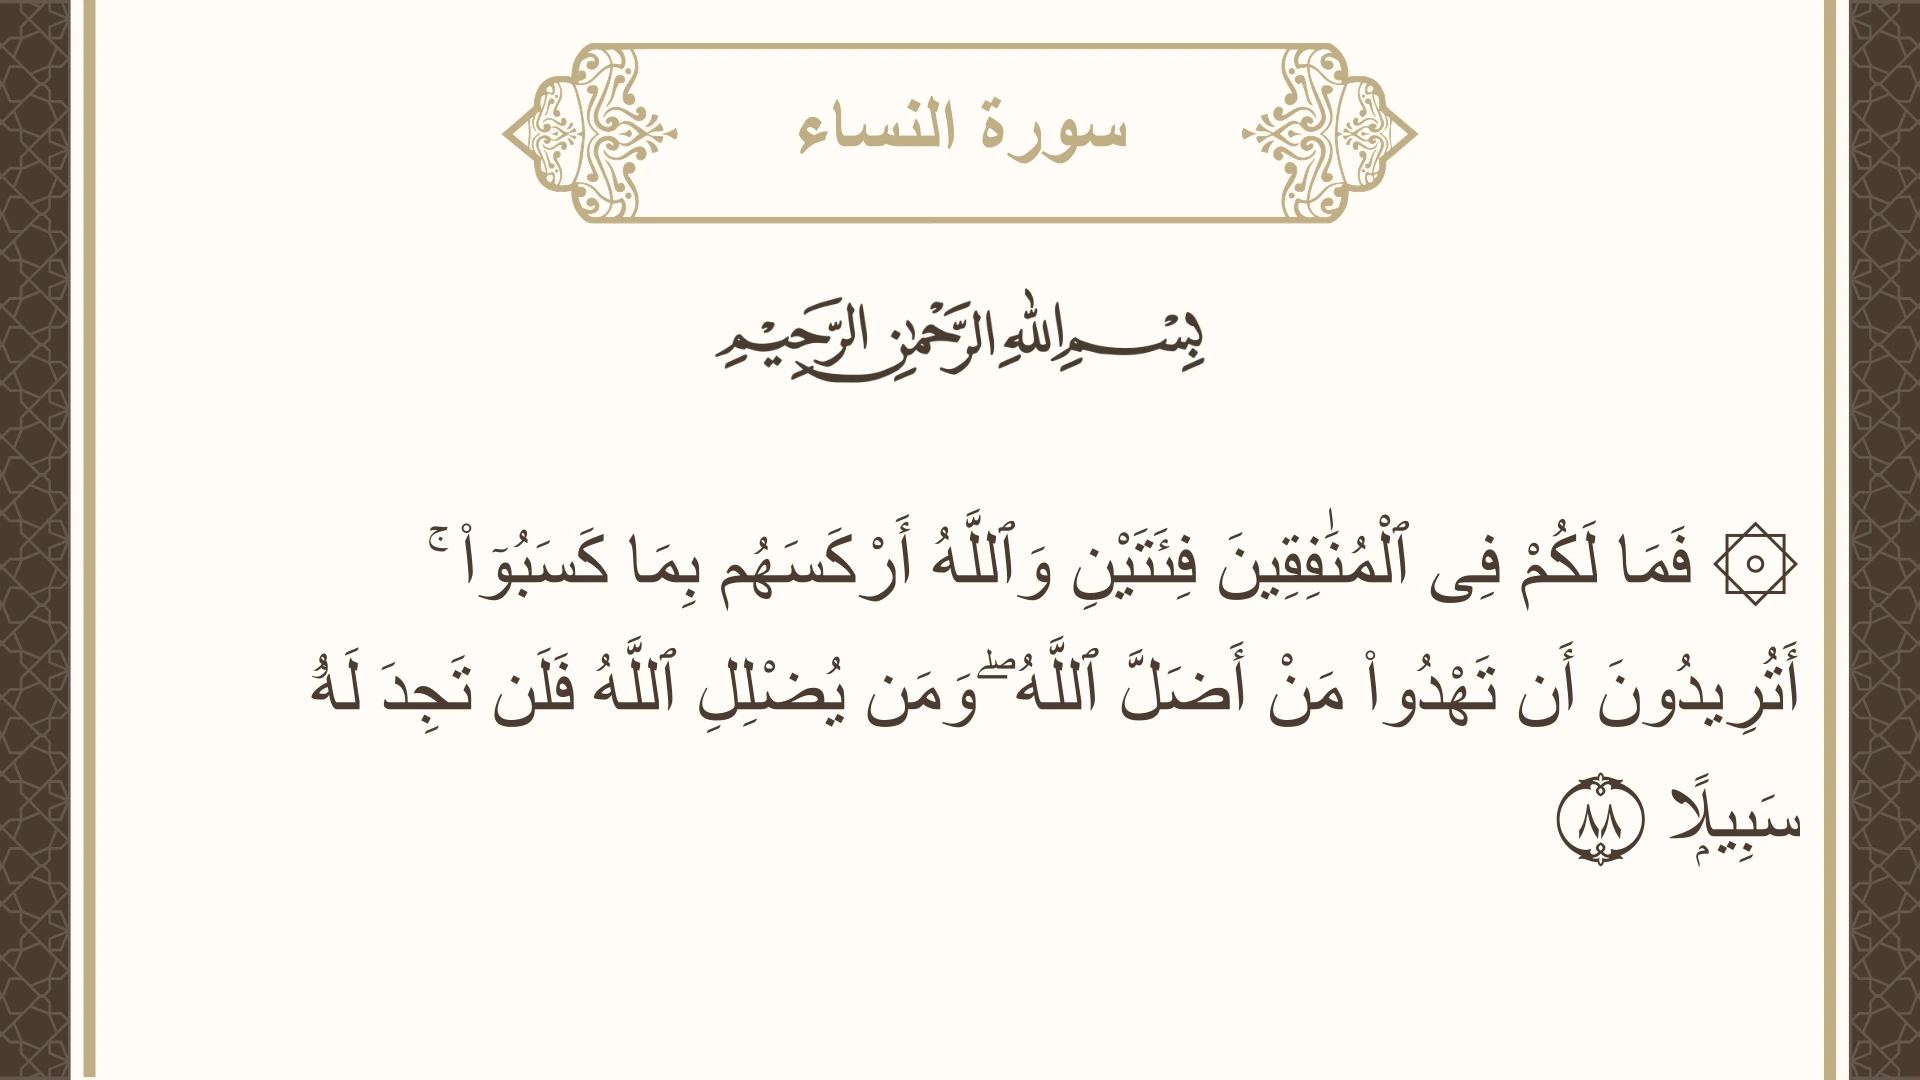 سورة النساء
بِسْمِ اللهِ الرَّحْمٰنِ الرَّحِيْمِ
۞ فَمَا لَكُمْ فِى ٱلْمُنَٰفِقِينَ فِئَتَيْنِ وَٱللَّهُ أَرْكَسَهُم بِمَا كَسَبُوٓا۟ ۚ
أَتُرِيدُونَ أَن تَهْدُوا۟ مَنْ أَضَلَّ ٱللَّهُ ۖ وَمَن يُضْلِلِ ٱللَّهُ فَلَن تَجِدَ لَهُۥ
سَبِيلًۭا ٨٨